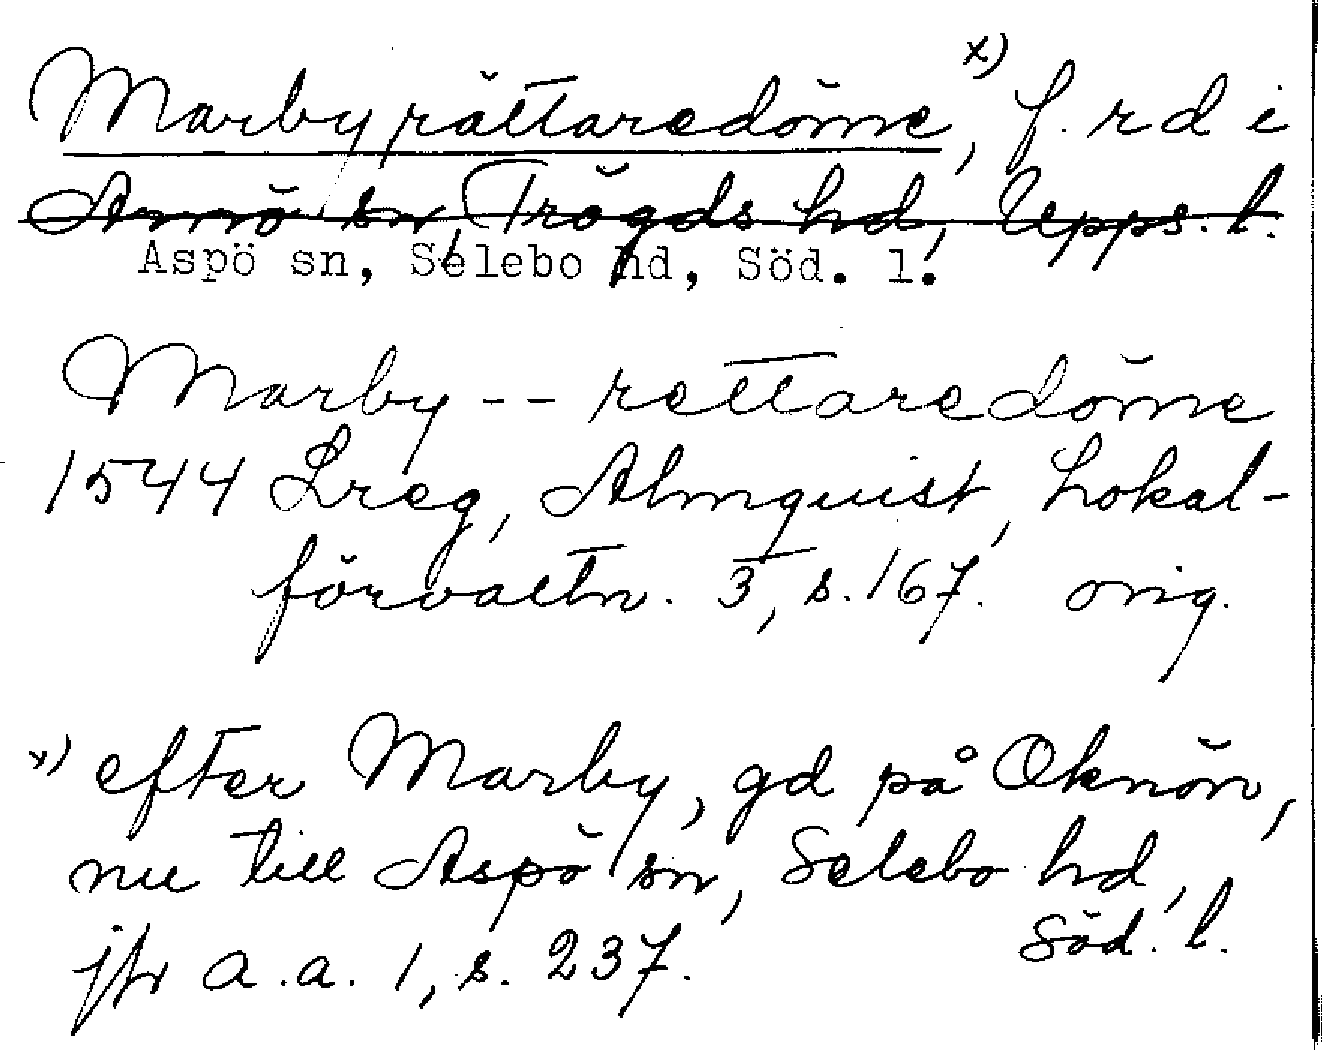 Marby rättaredöme, x) f. r d i
Arnö sn, Trögds hd, Upps. l.
Aspö sn, Selebo hd, Söd. l.
Marby -- rettaredöme
1544 Lreg, Almquist, Lokal-
förvaltn. 3, s. 167. orig.
x) efter Marby, gd på Oknön,
nu till Aspö sn, Selebo hd,
Söd. l.
jfr a.a. 1, s. 237.